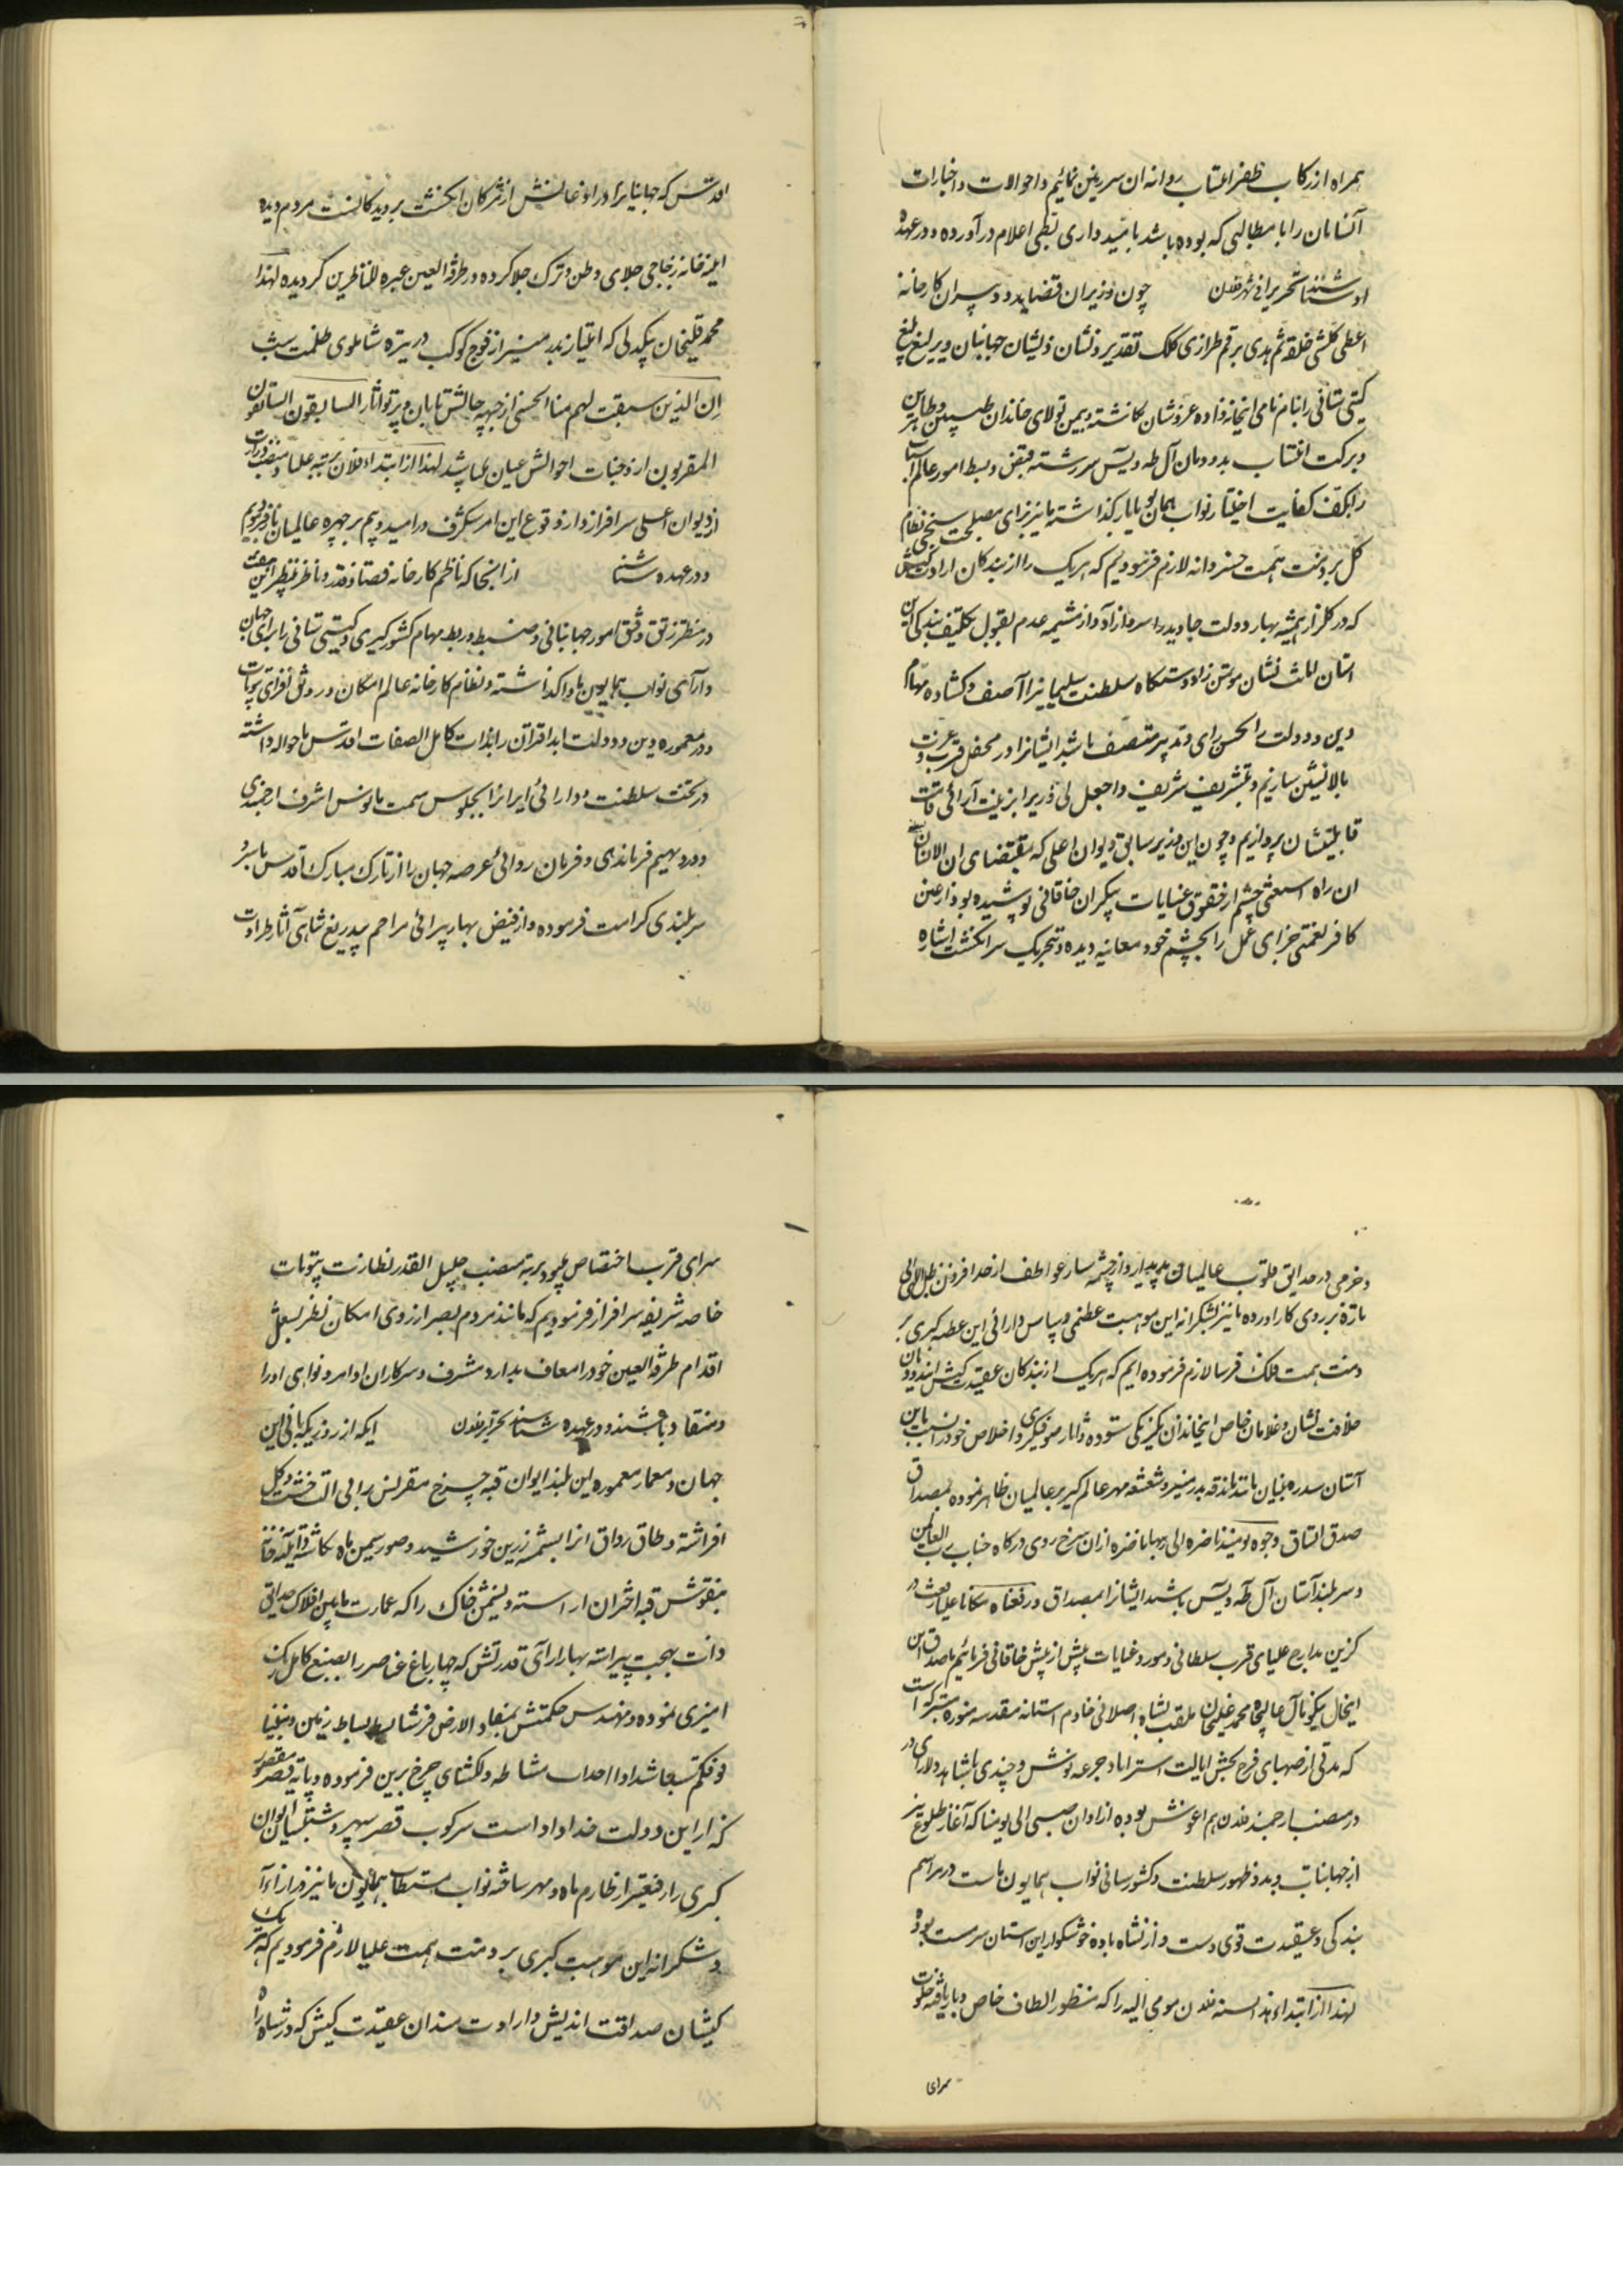 همراه از رکاب ظفر انتساب روانه ان سرزمین نمائیم و احوالات و اخبارات
آنسامان را با مطالبی که بوده باشد بامیدواری تمام اعلام در آورده و در عهده
شناسند تحریرا فی شهر فلان چون وزیران قضا ید و دبیران کارخانه
اعطی کلشی خلقه ثم هدی برقم طرازی کلک تقدیر و نشان ذیشان جهانبانی و یرلیغ بلیغ
گیتی ستانی را بنام نامی اینخانزاده عز و شان نگاشته و بیمن تولای خاندان طیبین و طاهرین
و برکت انتساب بدودمان آل طه و یس سررشته قبض و بسط امور عالم
را بکف کفایت اختیار نواب همایون ما گذاشته ما نیز برای مصلحت سنجی نظام
کل بر ذمت همت خسروانه لازم فرمودیم که هریک را از بندکان ارادت کیش
که در کلزار همیشه بهار دولت جاوید سرو آزاد و از مشیمه عدم بقبول تکلیف بندکی این
استان ملائک نشان موتمن زاد و دستکاه سلطنت سلیمانیرا آصف و کشاده مهام
دین و دولت را بحسن رای و تدبیر متصف باشد ایشانرا در محفل قرب و عزت
بالانشین سازیم و بتشریف شریف و اجعل لی وزیرا بزینت آرائی قامت
قابلیتشان پردازیم و چون این وزیر سابق دیوان اعلی که بمقتضای ان الانسان
چشم از حقوق عنایات بیکران خاقانی پوشیده بود از عین
کافر نعمتی جزای عمل را بچشم خود معاینه دیده و بتحریک سر انکشت اشاره
اقدس که جهانیانرا در اوضاعش از مژکان انکشت بر دیدکانست مردم دیده
اینه خانه زجاجی جلای وطن و ترک جلا کرده در طرفة العین عبرة للناظرین کردیده لهذا
محمد قلیخان بیکدلی که امتیاز بدر منیر از فوج کوکب در تیره شاملوی ظلمت شب
ان الذین سبقت لهم منا الحسنی از جبهه حالش تابان و پرتو اثار السابقون السابقون
المقربون از وجنات احوالش عیان میباشد لهذا از ابتداء فلان برتبه علیا و منصب وزارت
از دیوان اعلی سرافراز و از وقوع این امر شکرف در امید و بیم بر چهره عالمیان باز فرمودیم
و در عهده شناسند از انجا که ناظم کارخانه قضا و قدر و ناظر
در منظر رتق و فتق امور جهانبانی و ضبط و ربط مهام کشورکیری و کیتی ستانی را برای جهان
دارآی نواب همایون ما واگذاشته و نظام کارخانه عالم امکان و رونق افزای بیوتات
و در معموره دین و دولت ابد اقتران را بذات کامل الصفات اقدس ما حواله داشته
و تخت سلطنت و دارائی ایرانرا بجلوس سمت مانوس اشرف ارجمندی
و دیهیم فرماندهی و فرمان روائی عرصه جهان را از تارک مبارک اقدس ما سر و
سربلندی کرامت فرموده و از فیض بهار پیرائی مراحم بیدریغ شاهی آثار طراوت
و خرمی در حدایق قلوب عالمیان پدیدار و از چشمه سار عواطف از حد افزون ظل اللهی
تازه بر روی کار اورده ما نیز بشکرانه این موهبت عظمی و سپاس دارائی این عطیه کبری بر
ذمت همت فلک فرسا لازم فرموده ایم که هریک از بندکان عقیدت کیش این دودمان
خلافت نشان و غلامان خاص اینخاندان یکرنکی ستوده و اثار صوفیکری و اخلاص خود را نسبت باین
آستان سدره بنیان مانند بدر منیر و شعشعه مهر عالمکیر بر عالمیان ظاهر نموده بمصداق
صدق اتساق وجوه یومئذ ناضره الی ربها ناظره از ان سرخ روی درکاه جناب رب العالمین
و سربلند آستان آل طه و یس باشد ایشانرا بمصداق و رفعناه مکانا علیا رفعت
کزین مدارج علیای قرب سلطانی و مورد عنایات بیش از پیش خاقانی فرمائیم مصداق این
اینحال نیکو مآل عالیجاه محمد علیخان ملقب بشاه اصلانی خادم استانه مقدسه منوره متبرکه است
که مدتی از صهبای فرح بخش ایالت استراباد جرعه نوش و چندی با شاهد دلارای
در منصب ارجمند فلان هم اغوش بوده از اوان صبی الی یومنا که آغاز طلوع نیر
از جهانتاب و بدو ظهور سلطنت و کشورستانی نواب همایون ماست در مراسم
بندکی و عقیدت قوی دست و از نشاه باده خوشکوار این استان سرمست بوده
لهذا از ابتداء هذا السنه فلان مومی الیه را که منظور الطاف خاص و باریافته خلوت
سرای
سرای قرب اختصاص میبود برتبه منصب جلیل القدر نظارت بیوتات
خاصه شریفه سرافراز فرمودیم که مانند مردم بصیر از روی امکان نظر بشغل
اقدام طرفة العین خود را معاف ندارد مشرف و سرکاران اوامر و نواهی او را
و منقاد باشند و در عهده شناسند تحریرا فلان ایکه از روزیکه بانی این
جهان و معمار معموره این بلند ایوان قبه چرخ مقرنس را بی الت خشت و گل
افراشته و طاق رواق انرا بشمسه زرین خورشید و صور سیمین ماه نکاشته و آینه خانه
بنقوش قبه اختران اراسته و نشیمن خاک را که عمارت مابین افلاک حدایق
ذات بهجت پیراسته بهار ارای قدرتش که چهار باغ عناصر را بصنع کامل رنک
امیزی نموده و مهندس حکمتش بمفاد الارض فرشنا بسط بساط زمین و بنینا
فوقکم سبعا شدادا احداث مشاطه دلکشای چرخ برین فرموده و پایه قصر
این دولت خداداد است سرکوب قصر سپهر و شبستان ایوان
کبری را رفیعتر از طارم ماه و مهر ساخته نواب مستطاب همایون ما نیز در ازاء
و شکرانه این موهبت کبری بر ذمت همت علیا لازم فرمودیم که هر یک
کیشان صداقت اندیش و ارادت مندان عقیدت کیش که در شاه راه